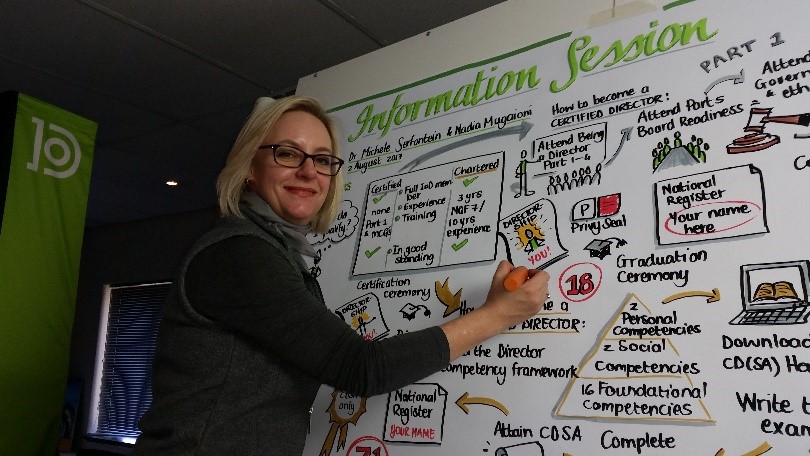 Information Session
Dr Michele Serfontein & Nadia Mugaioni
2 August 2017
PART 1
Attend
Govern
& eth
How to become a
CERTIFIED DIRECTOR:
Attend Being
a Director
Part 1-4
Attend Part 5
Board Readiness
Certified
none
Part 1
& MCQs
Full IoD mem
ber
Experience
Training
In good
standing
Chartered
3 yrs
NQF 7/
10 yrs
experience
DIRECTOR
SHIP
YOU!
P
Privy Seal
National
Register
Your name
here
18
Graduation
Ceremony
Certification
Ceremony
DIRECTOR
SHIP
DIRECTOR:
the Director
mpetency framework
2
Personal
Competencies
2 Social
Competencies
16 Foundational
Competencies
Download
CD(SA) Ha
only
National
Register
YOUR NAME
71
Attain CDSA
Complete
Write t
exam